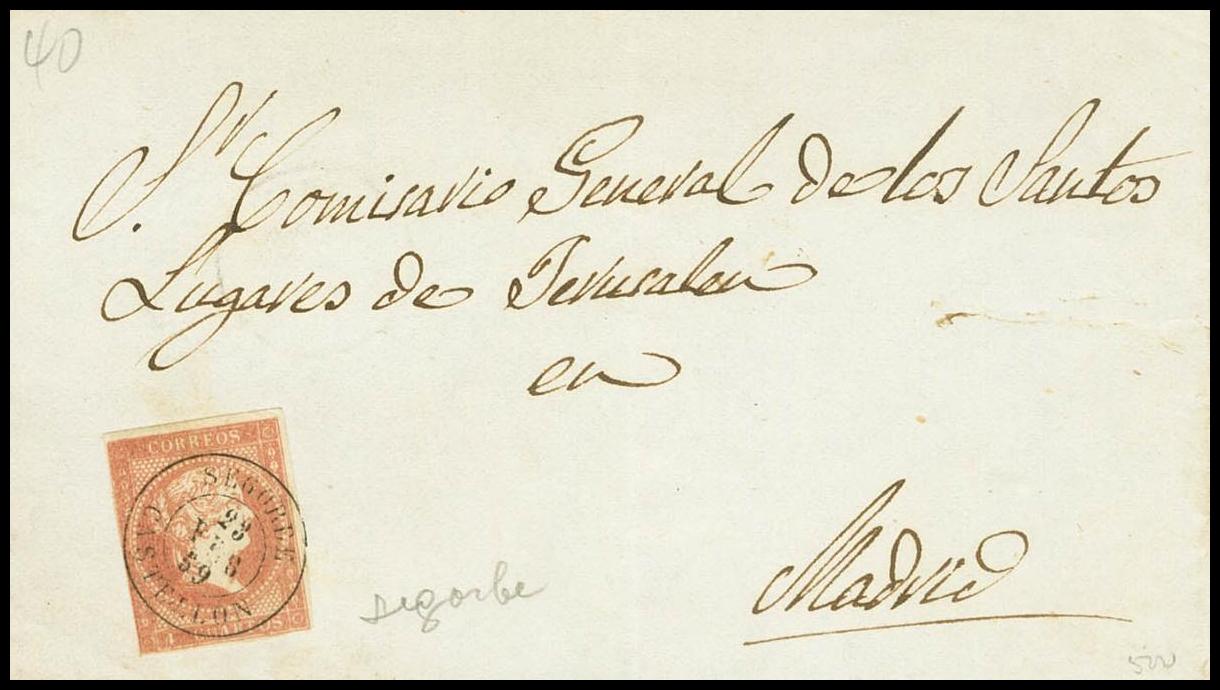 40
Sr. Comisario General de los Santos
Lugares de Jerusalen
en
Madrid
CORREOS
SEGORBE
23
FEB
59
CASTELLON
CUARTOS
segorbe